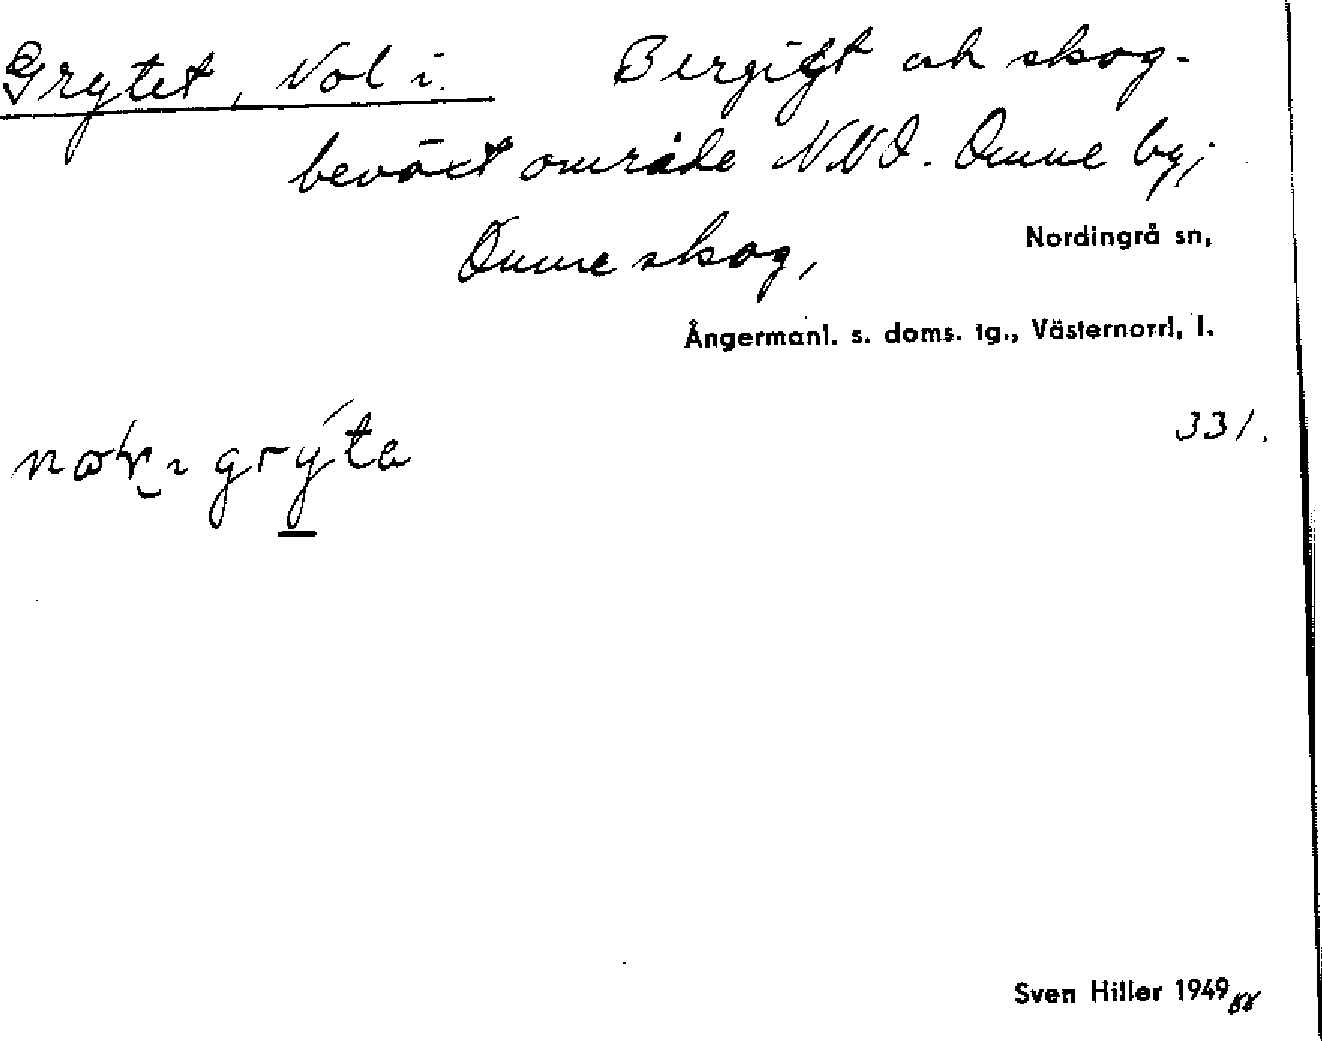 Grytet, Nol i. Bergigt och skog-
beväxt område NNO. Omne by;
Omne skog, Nordingrå sn,
Ångermanl. s. doms. tg., Västernorrl. l.
331.
i grýta
Sven Hiller 1949